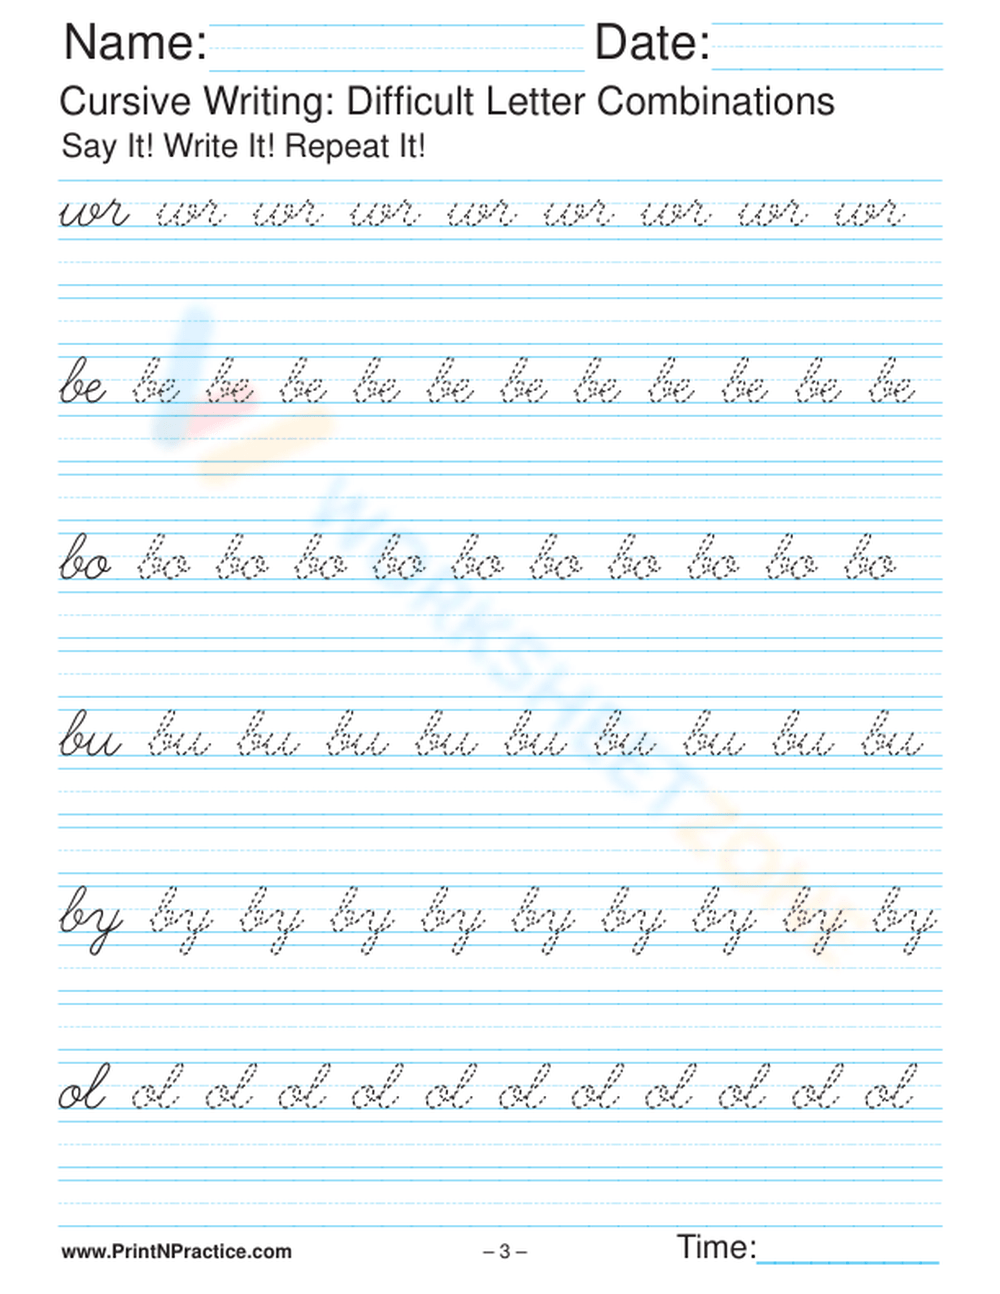 Name: Date:
Cursive Writing: Difficult Letter Combinations
Say It! Write It! Repeat It!
wr wr wr wr wr wr wr wr wr
be be be be be be be be be be be be
WORKSHEETZONE
bo bo bo bo bo bo bo bo bo bo bo
bu bu bu bu bu bu bu bu bu bu
by by by by by by by by by by
ol ol ol ol ol ol ol ol ol ol ol ol
www.PrintNPractice.com – 3 – Time: